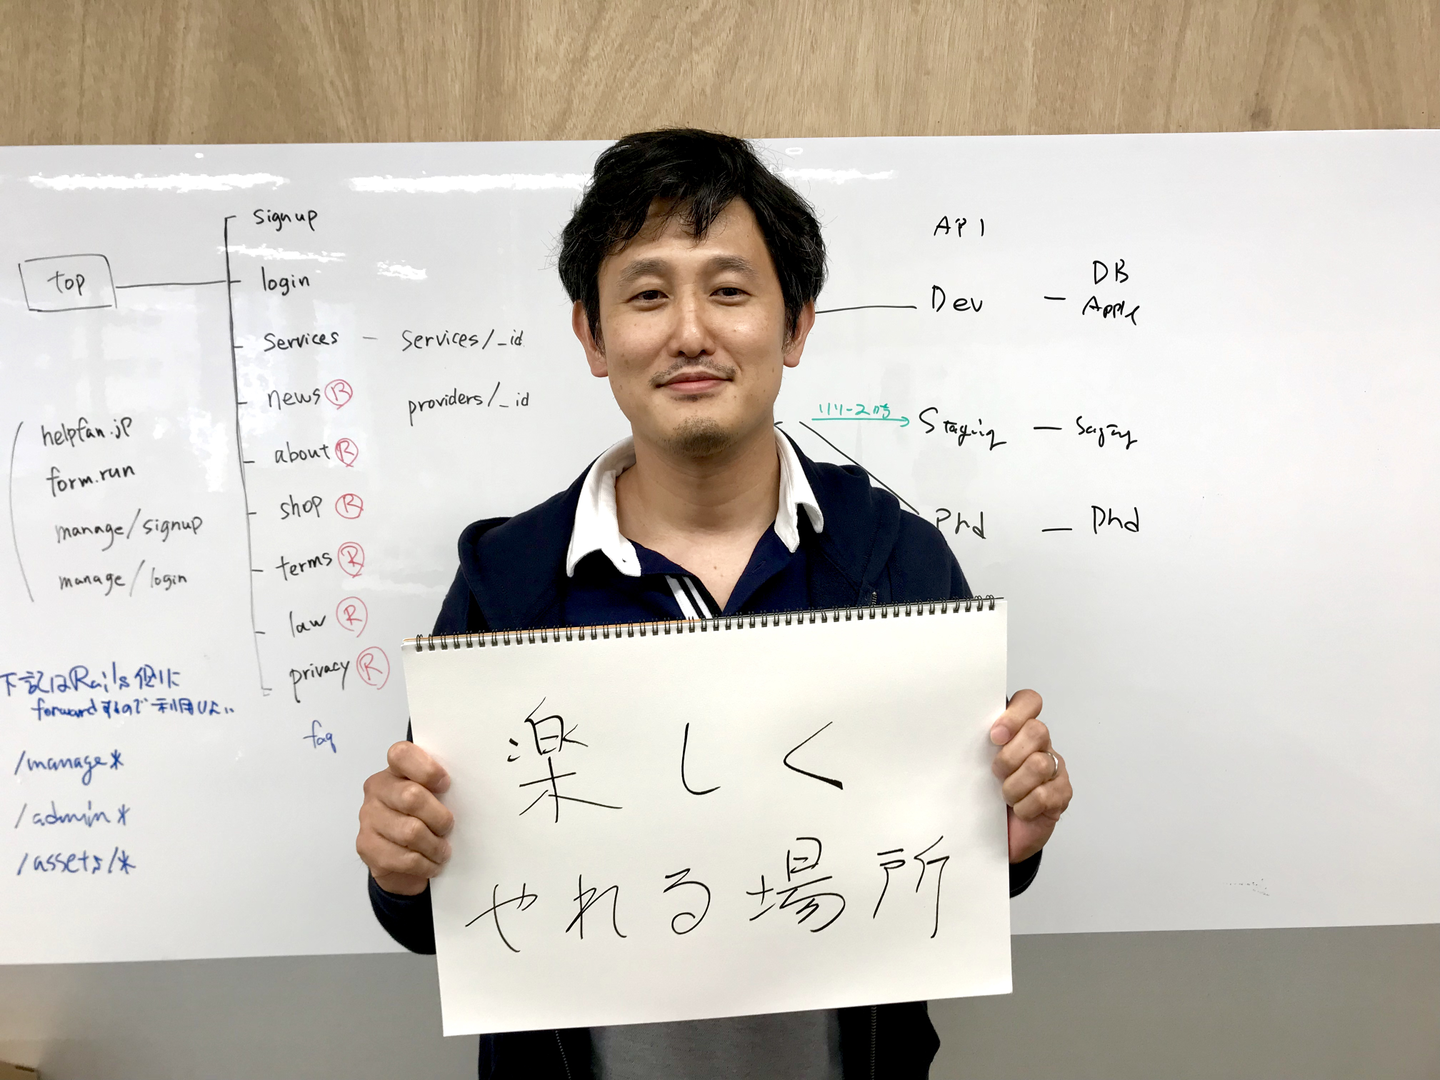 top
signup
login
services - services/_id
providers/_id
news Ⓡ
about Ⓡ
shop Ⓡ
terms Ⓡ
law Ⓡ
privacy Ⓡ
faq
helpfan.jp
form.run
manage/signup
manage/login
下記はRails側に
forwardするので利用しない
/manage*
/admin*
/assets/*
API
Dev - DB
リリース時
Staging -
Prd - Prd
楽しく
やれる場所